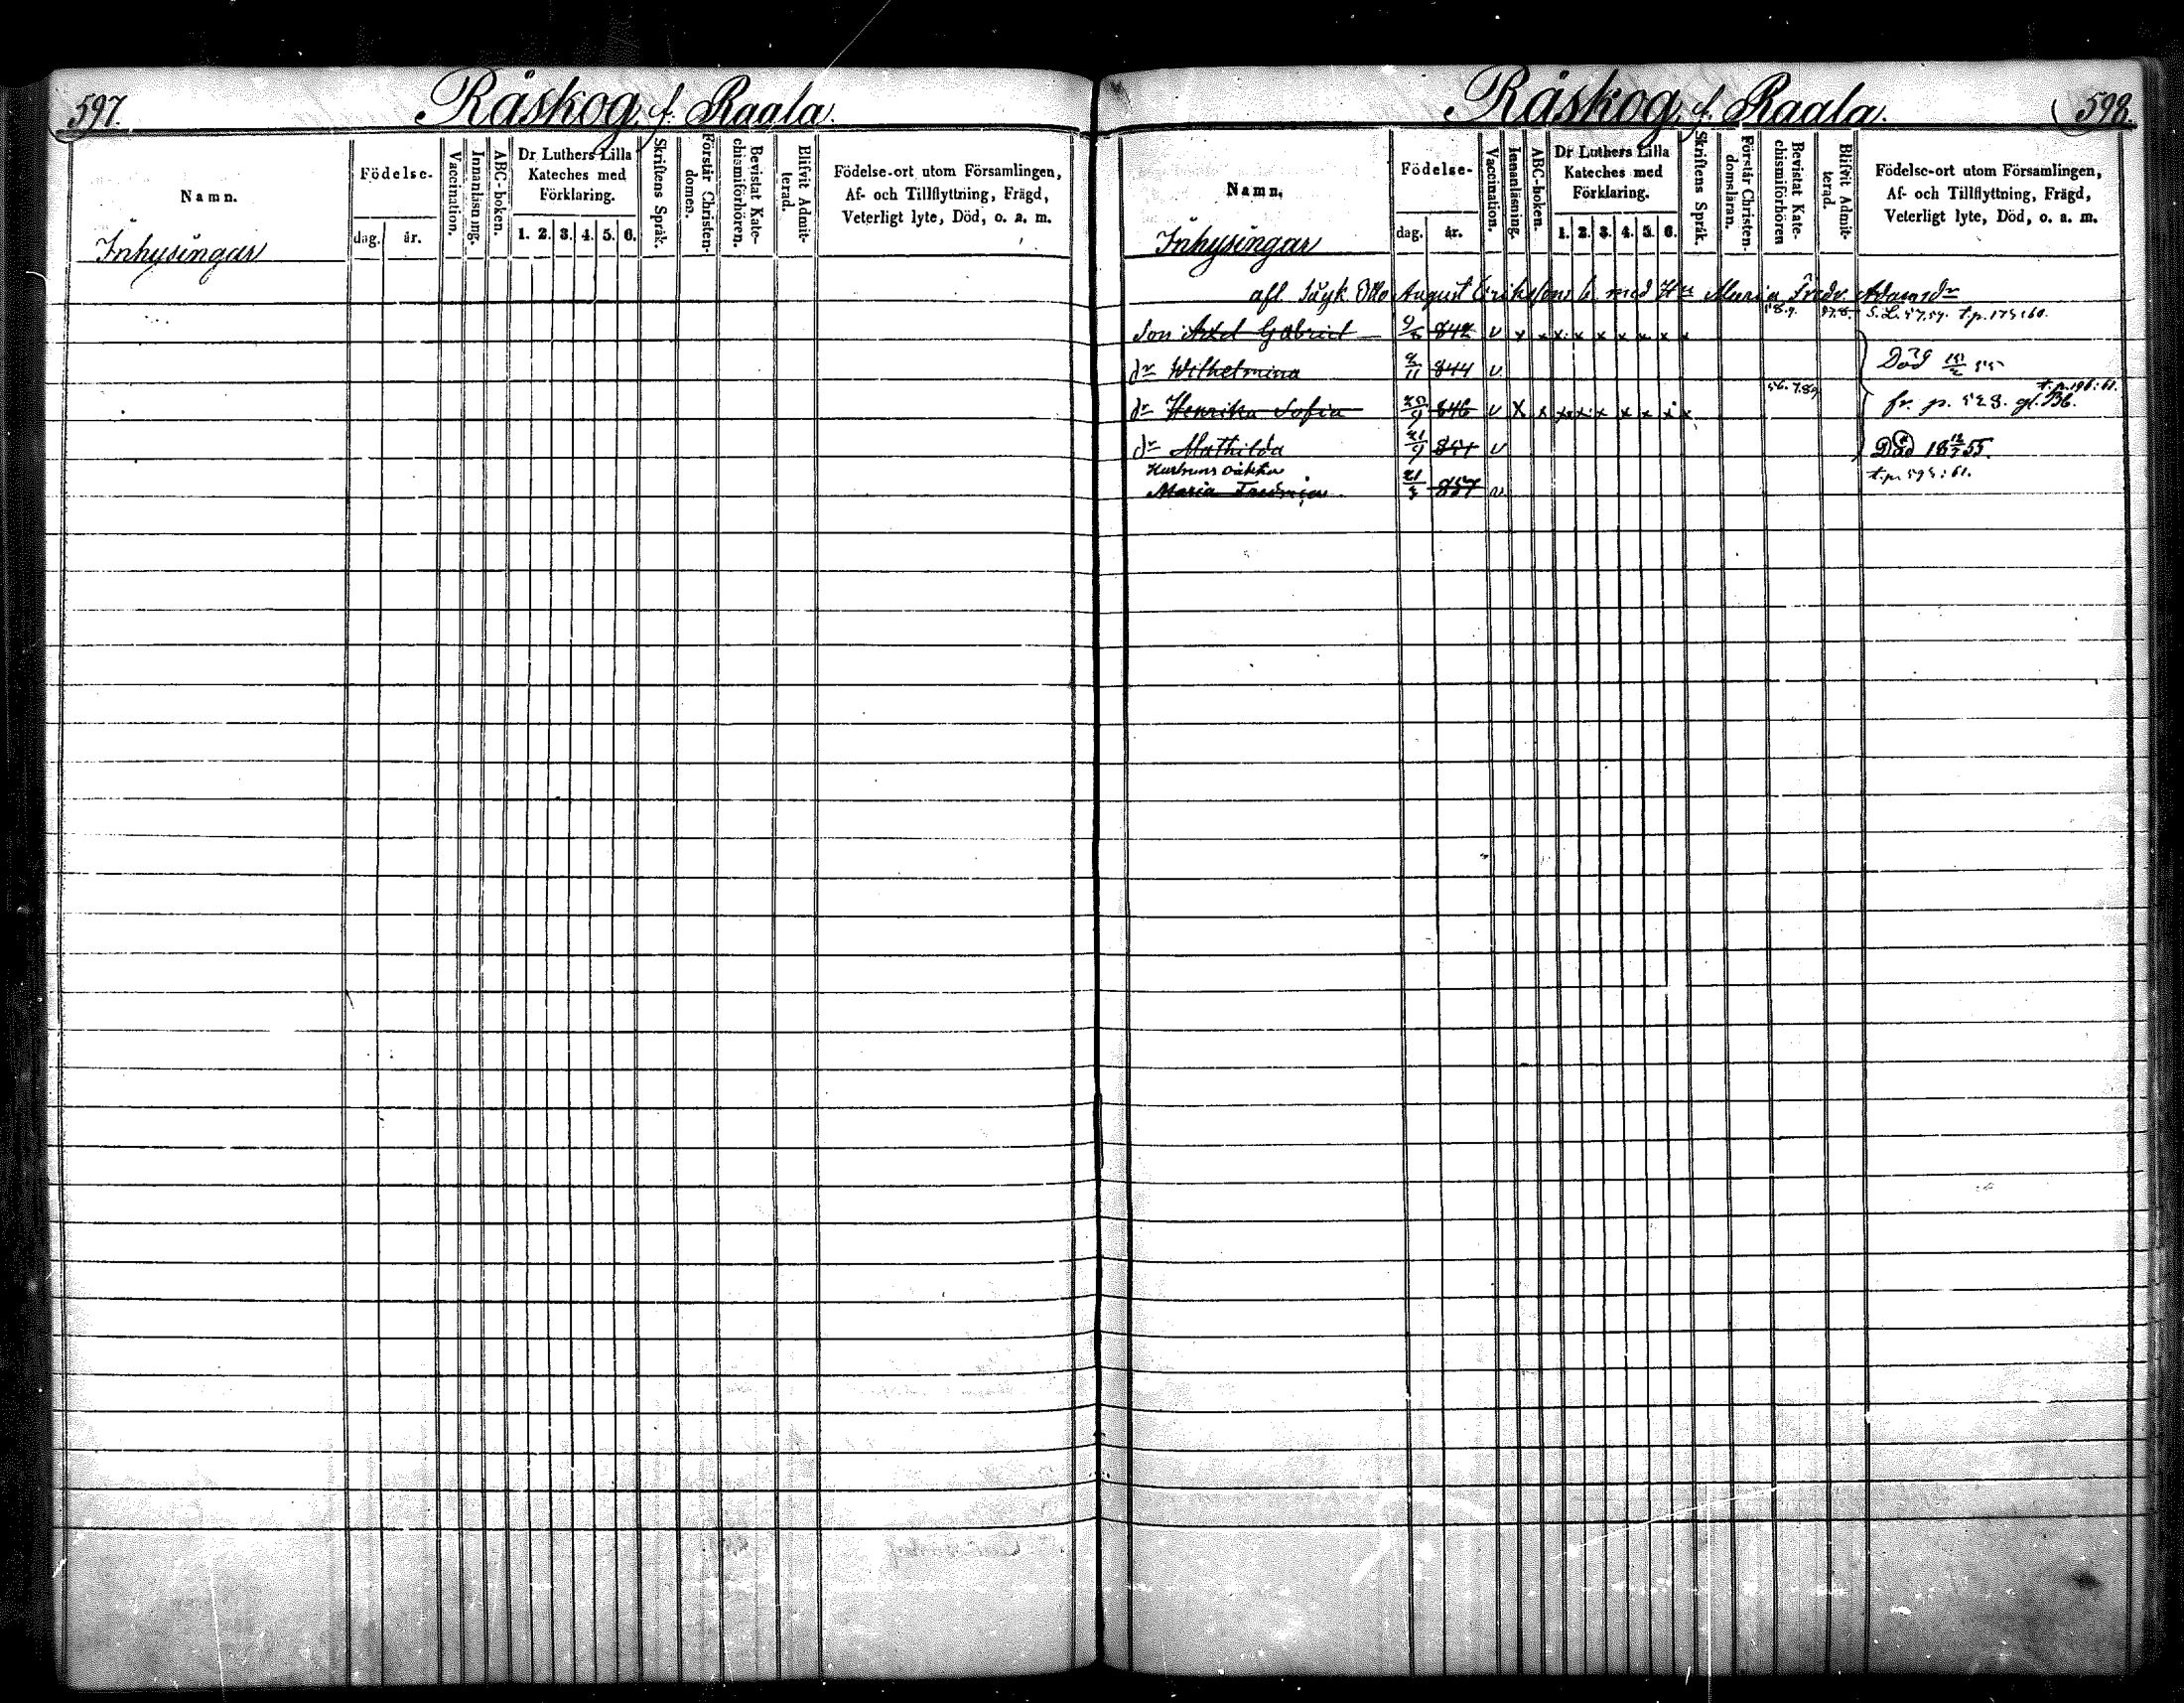 597.
Råskog f. Raala.
Namn.
Födelse-
dag. år.
Vaccination.
Innanläsning.
ABC-boken.
Dr Luthers Lilla
Kateches med
Förklaring.
1. 2. 3. 4. 5. 6.
Skriftens Språk.
Förstår Christen-
domen.
Bevistat Kate-
chismiförhören.
Blifvit Admit-
terad.
Födelse-ort utom Församlingen,
Af- och Tillflyttning, Frägd,
Veterligt lyte, Död, o. a. m.
Inhysingar
Råskog f. Raala.
598.
Namn.
Födelse-
dag. år.
Vaccination.
Innanläsning.
ABC-boken.
Dr Luthers Lilla
Kateches med
Förklaring.
1. 2. 3. 4. 5. 6.
Skriftens Språk.
Förstår Christen-
domsläran.
Bevistat Kate-
chismiförhören
Blifvit Admit-
terad.
Födelse-ort utom Församlingen,
Af- och Tillflyttning, Frägd,
Veterligt lyte, Död, o. a. m.
Inhysingar
afl. Otto August Erikssons b. med Hu Maria Fredr. Adamsdr
Son Axel Gabriel 842 v x x x x x x x x x 58.9. t.p. 175:60.
dr Wilhelmina 844 v Död
dr Henrika Sofia 846 v x x x x x x x x x 56.7.8.9 fr. p. 528. gl. Bb. t.p. 196:61.
dr Mathilda v Död 18 55.
Hustruns oäkta
Maria Fredrica 21 857 v t.p. 595:61.